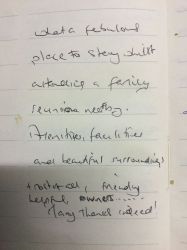 what a fabulous
place to stay whilst
attending a family
reunion nearby.
Amenities, facilities
and beautiful surroundings
helpful, friendly
owners......
Many thanks indeed!